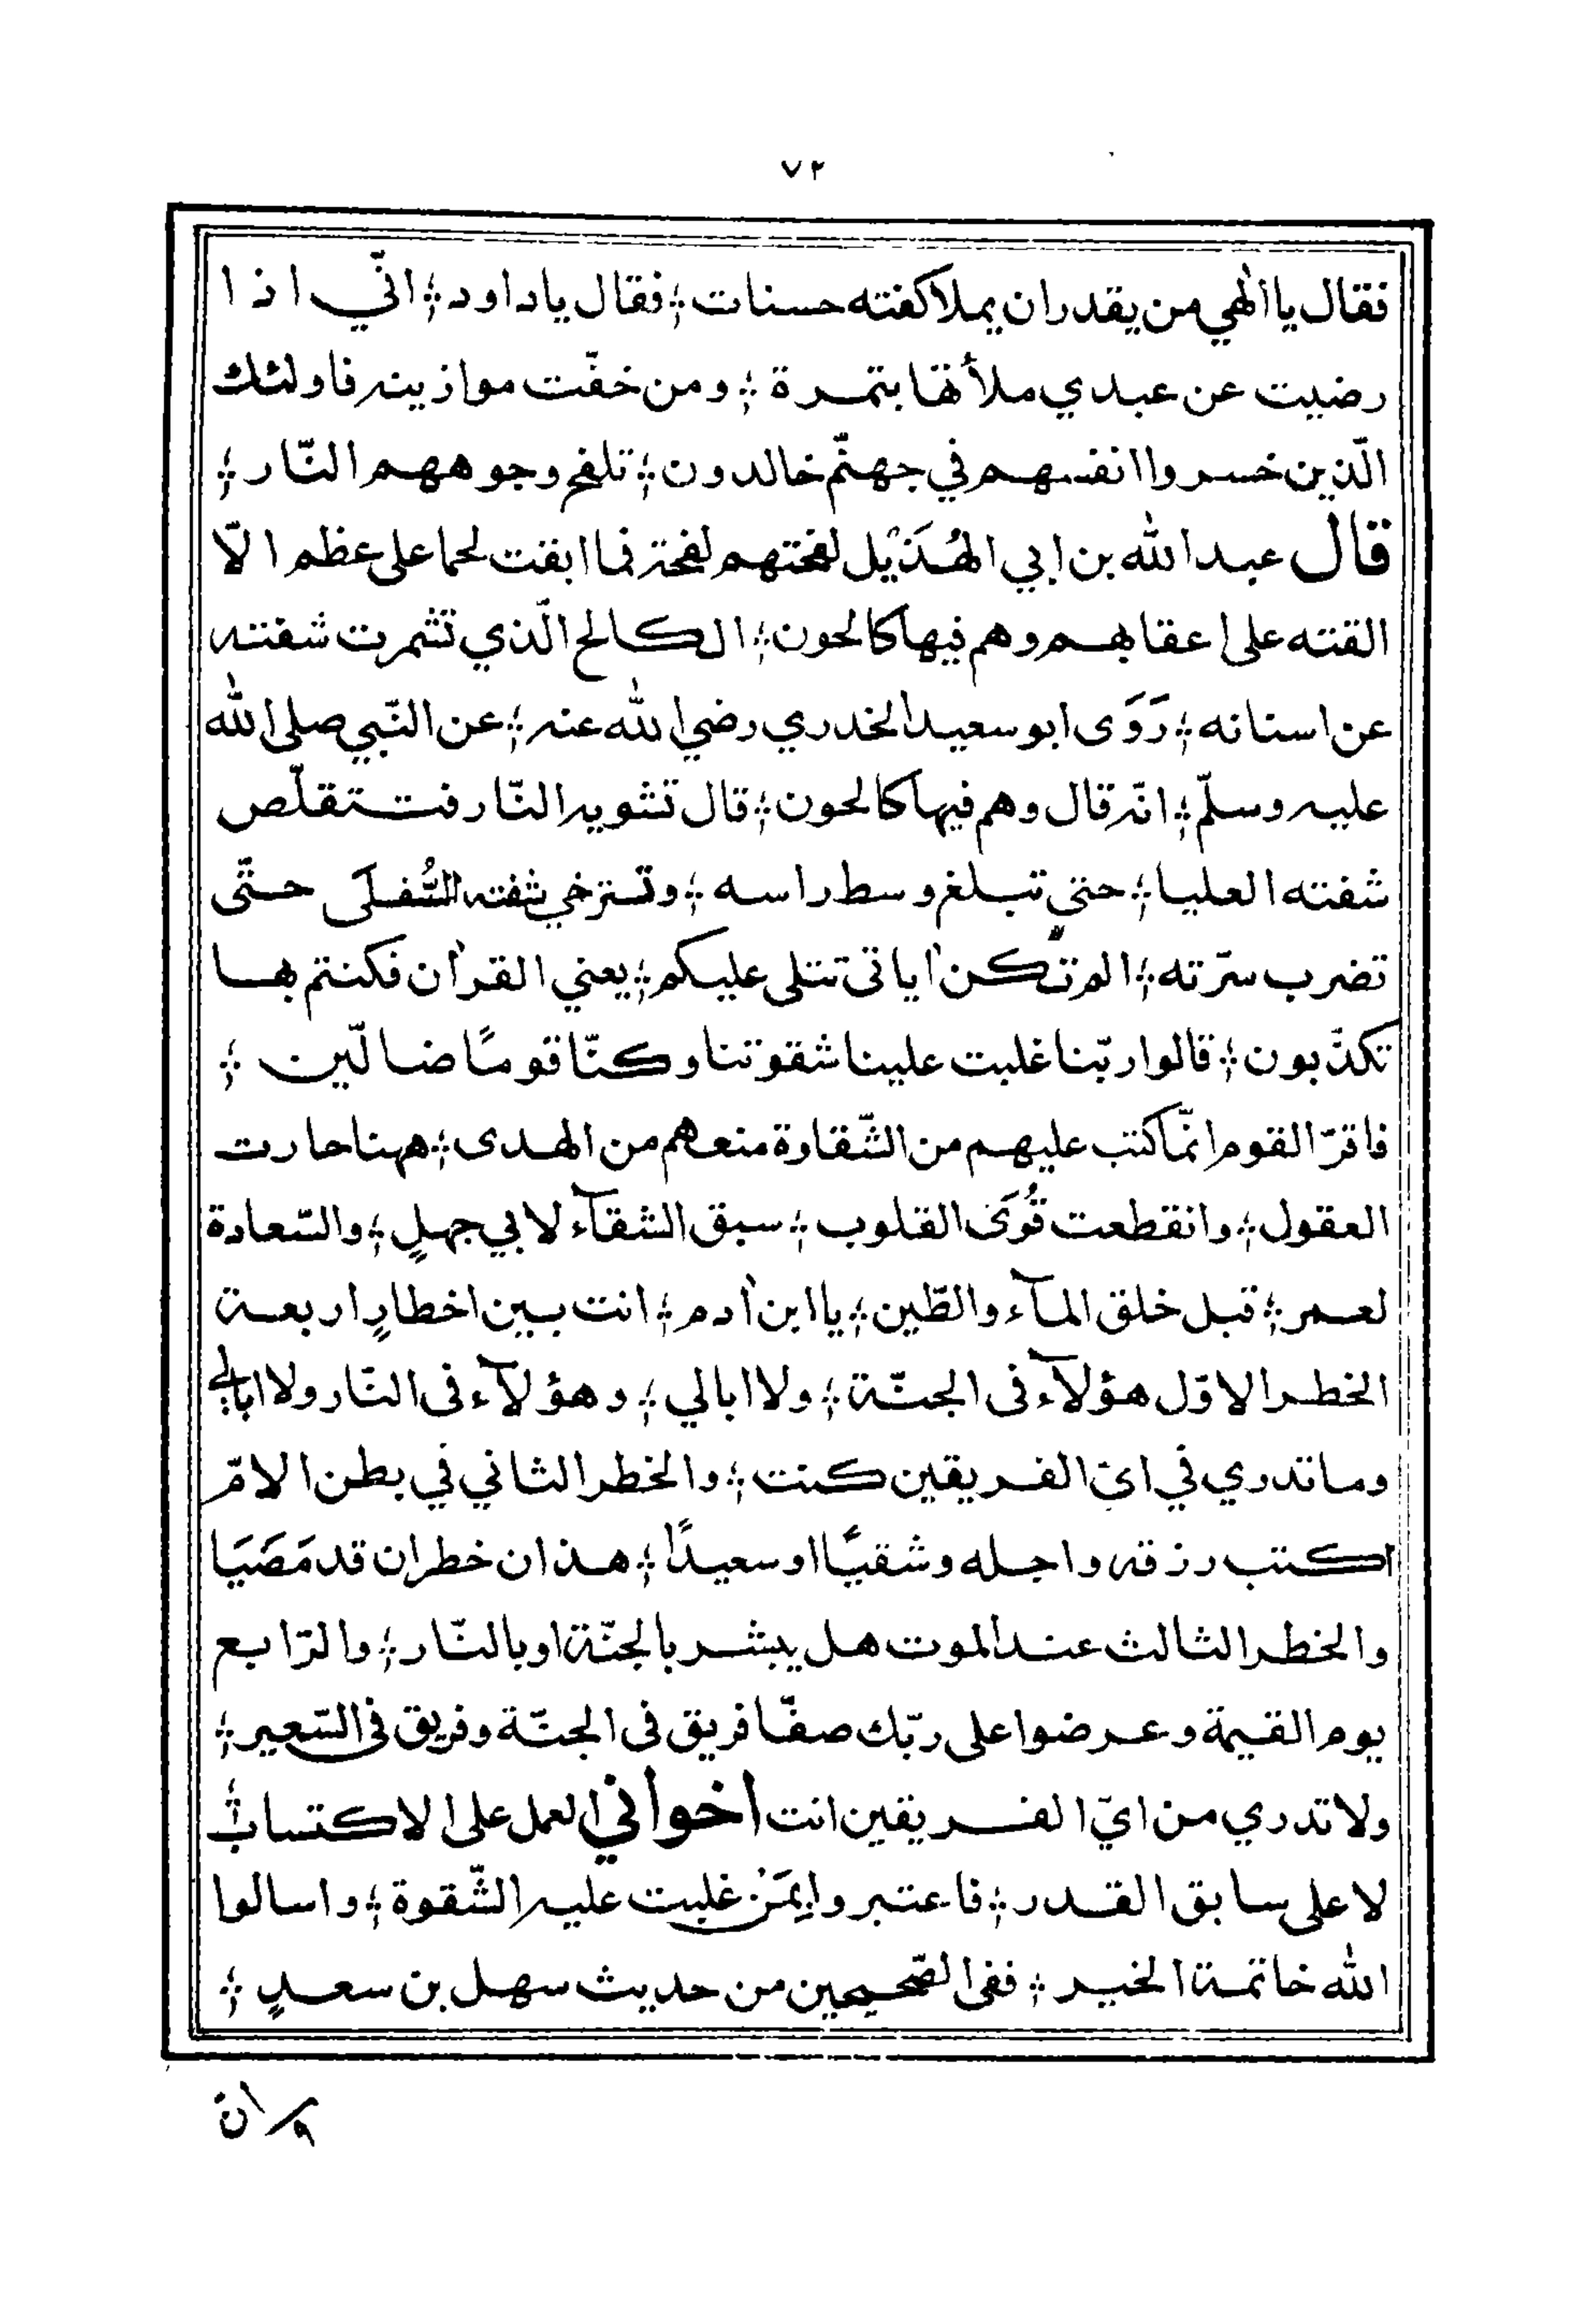 ٧٢
فقال يا الٰهي من يقدر ان يملا كفته حسنات ؛ فقال يا داود ؛ انّي اذا
رضيت عن عبدي ملأتها بتمرة ؛ ومن خفّت موازينه فاولئك
الّذين خسروا انفسهم في جهنّم خالدون ؛ تلفح وجوههم النّار ؛
قال عبد الله بن ابي الهُذَيْل لفحتهم لفحة فما ابقت لحما على عظم الّا
القته على اعقابهم وهم فيها كالحون ؛ الكالح الّذي تشمرت شفته
عن اسنانه ؛ رَوَى ابو سعيد الخدري رضي الله عنه ؛ عن النّبي صلى الله
عليه وسلّم ؛ انّه قال وهم فيها كالحون ؛ قال تشويه النّار فتتقلّص
شفته العليا ؛ حتى تبلغ وسط راسه ؛ وتسترخي شفته السُّفلَى حتّى
تضرب سرّته ؛ الم تكن اٰياتى تتلى عليكم ؛ يعني القراٰن فكنتم بها
تكذّبون ؛ قالوا ربّنا غلبت علينا شقوتنا وكنّا قومًا ضالّين ؛
فاقرّ القوم انّما كتب عليهم من الشّقاوة منعهم من الهدى ؛ ههنا حارت
العقول ؛ وانقطعت قُوَى القلوب ؛ سبق الشقآء لابي جهلٍ ؛ والسّعادة
لعمر ؛ قبل خلق المآء والطّين ؛ يا ابن اٰدم ؛ انت بين اخطارٍ اربعة
الخطر الاوّل هؤلآء فى الجنّة ؛ ولا ابالي ؛ وهؤلآء فى النّار ولا ابالي
وما تدري في ايّ الفريقين كنت ؛ والخطر الثاني في بطن الامّ
اكتب رزقه واجله وشقيًّا او سعيدًا ؛ هذان خطران قد مَضَيَا
والخطر الثالث عند الموت هل يبشر بالجنّة او بالنّار ؛ والرّابع
يوم القيمة وعرضوا على ربّك صفّا فريق فى الجنّة وفريق فى السّعير ؛
ولا تدري من ايّ الفريقين انت اخواني العمل على الاكتساب ؛
لا على سابق القدر ؛ فاعتبروا بِمَنْ غلبت عليه الشّقوة ؛ واسالوا
الله خاتمة الخير ؛ ففى الصّحيحين من حديث سهل بن سعدٍ ؛